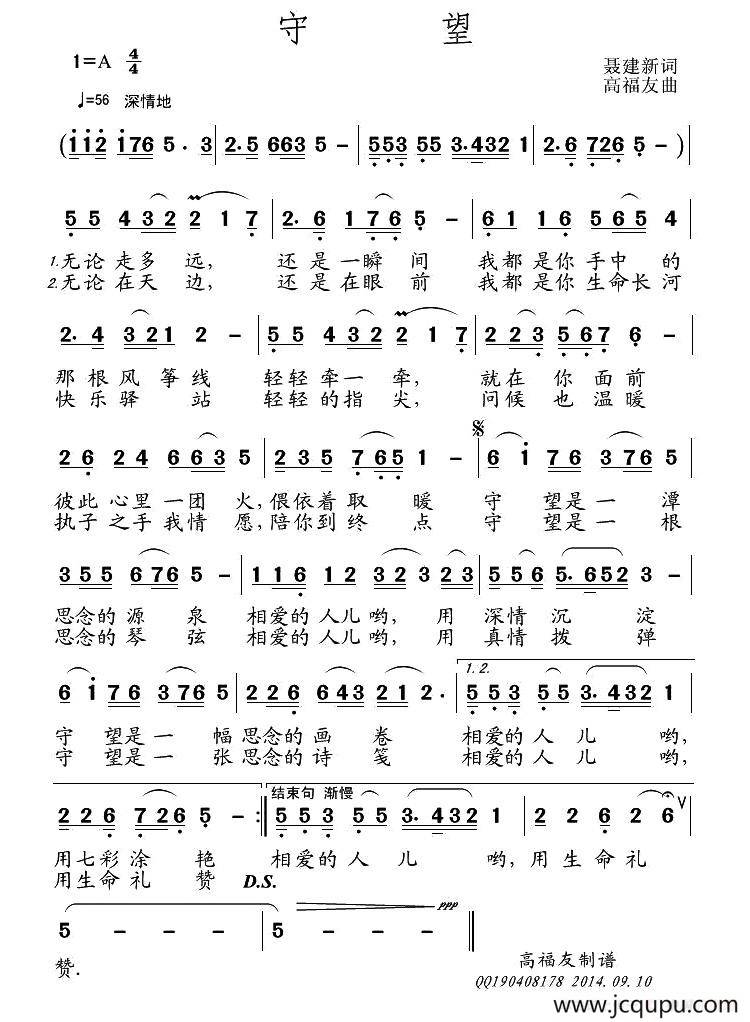 守 望
1=A 4/4
聂建新词
♩=56 深情地
高福友曲
(1 1 2 1 7 6 5 . 3 | 2 . 5 6 6 3 5 - | 5 5 3 5 5 3 . 4 3 2 1 | 2 . 6 7 2 6 5 - )
5 5 4 3 2 2 1 7 | 2 . 6 1 7 6 5 - | 6 1 1 6 5 6 5 4 |
1.无论 走多 远, 还是 一瞬 间 我都 是你 手中 的
2.无论 在天 边, 还是 在眼 前 我都 是你 生命长 河
2 . 4 3 2 1 2 - | 5 5 4 3 2 2 1 7 | 2 2 3 5 6 7 6 - |
那根 风 筝线 轻轻 牵一 牵, 就在 你 面前
快乐 驿 站 轻轻 的指 尖, 问候 也 温暖
2 6 2 4 6 6 3 5 | 2 3 5 7 6 5 1 - | 6 1 7 6 3 7 6 5 |
彼此 心里 一团 火,偎依着 取 暖 守 望是一 潭
执子 之手 我情 愿,陪你到 终 点 守 望是一 根
3 5 5 6 7 6 5 - | 1 1 6 1 2 3 2 3 2 3 | 5 5 6 5 . 6 5 2 3 - |
思念的 源 泉 相爱的 人儿 哟, 用 深情 沉 淀
思念的 琴 弦 相爱的 人儿 哟, 用 真情 拨 弹
6 1 7 6 3 7 6 5 | 2 2 6 6 4 3 2 1 2 . | 5 5 3 5 5 3 . 4 3 2 1 |
1. 2.
守 望是一 幅 思念的 画 卷 相爱的 人 儿 哟,
守 望是一 张 思念的 诗 笺 相爱的 人 儿 哟,
结束句 渐慢
2 2 6 7 2 6 5 - :|| 5 5 3 5 5 3 . 4 3 2 1 | 2 2 6 2 6 V
用七彩 涂 艳 相爱的 人 儿 哟, 用 生命 礼
用生命 礼 赞 D.S.
ppp
5 - - - | 5 - - - ||
赞.
高福友制谱
QQ190408178 2014. 09. 10
www.jcqupu.com